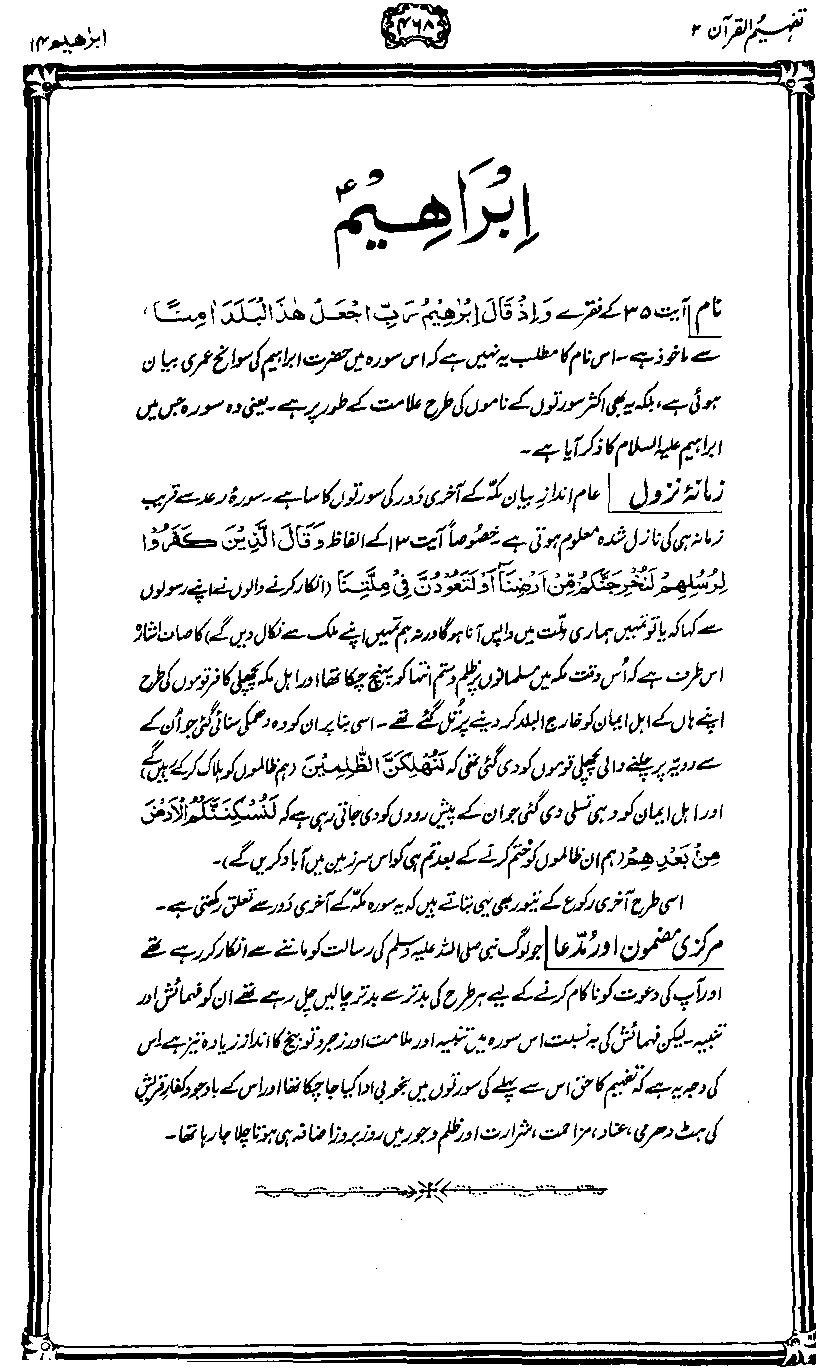 تفہیم القرآن ۲
۴۶۸
ابرٰھیم ۱۴
اِبْرَاھِیْمُؑ
نام آیت ۳۵ کے فقرے وَاِذْ قَالَ اِبْرٰھِیْمُ رَبِّ اجْعَلْ ھٰذَا الْبَلَدَ اٰمِنًا،
سے ماخوذ ہے۔ اس نام کا مطلب یہ نہیں ہے کہ اس سورہ میں حضرت ابراہیم کی سوانح عمری بیان
ہوئی ہے، بلکہ یہ بھی اکثر سورتوں کے ناموں کی طرح علامت کے طور پر ہے۔ یعنی وہ سورہ جس میں
ابراہیم علیہ السلام کا ذکر آیا ہے۔
زمانۂ نزول عام اندازِ بیان مکّہ کے آخری دَور کی سورتوں کا سا ہے۔ سورۂ رعد سے قریب
زمانہ ہی کی نازل شدہ معلوم ہوتی ہے۔ خصوصاً آیت ۱۳ کے الفاظ وَقَالَ الَّذِیْنَ کَفَرُوْا
لِرُسُلِھِمْ لَنُخْرِجَنَّکُمْ مِّنْ اَرْضِنَآ اَوْ لَتَعُوْدُنَّ فِیْ مِلَّتِنَا (انکار کرنے والوں نے اپنے رسولوں
سے کہا کہ یا تو تمہیں ہماری ملّت میں واپس آنا ہوگا ورنہ ہم تمہیں اپنے ملک سے نکال دیں گے) کا صاف اشارہ
اس طرف ہے کہ اُس وقت مکہ میں مسلمانوں پر ظلم و ستم انتہا کو پہنچ چکا تھا اور اہل مکہ پچھلی کافر قوموں کی طرح
اپنے ہاں کے اہل ایمان کو خارج البلد کر دینے پر تُل گئے تھے۔ اسی بنا پر ان کو وہ دھمکی سنائی گئی جو اُن کے
سے رویّہ پر چلنے والی پچھلی قوموں کو دی گئی تھی کہ لَنُھْلِکَنَّ الظّٰلِمِیْنَ (ہم ظالموں کو ہلاک کر کے رہیں گے)
اور اہل ایمان کو وہی تسلی دی گئی جو ان کے پیش رووں کو دی جاتی رہی ہے کہ لَنُسْکِنَنَّکُمُ الْاَرْضَ
مِنْ بَعْدِھِمْ (ہم ان ظالموں کو ختم کرنے کے بعد تم ہی کو اس سرزمین میں آباد کریں گے)۔
اسی طرح آخری رکوع کے تیور بھی یہی بتاتے ہیں کہ یہ سورہ مکّہ کے آخری دَور سے تعلق رکھتی ہے۔
مرکزی مضمون اور مُدّعا جو لوگ نبی صلی اللہ علیہ وسلم کی رسالت کو ماننے سے انکار کر رہے تھے
اور آپ کی دعوت کو ناکام کرنے کے لیے ہر طرح کی بدتر سے بدتر چالیں چل رہے تھے ان کو فہمائش اور
تنبیہ۔ لیکن فہمائش کی بہ نسبت اس سورہ میں تنبیہ اور ملامت اور زجر و توبیخ کا انداز زیادہ تیز ہے۔ اس
کی وجہ یہ ہے کہ تفہیم کا حق اس سے پہلے کی سورتوں میں بخوبی ادا کیا جا چکا تھا اور اس کے باوجود کفارِ قریش
کی ہٹ دھرمی، عناد، مزاحمت، شرارت اور ظلم و جور میں روز بروز اضافہ ہی ہوتا چلا جا رہا تھا۔